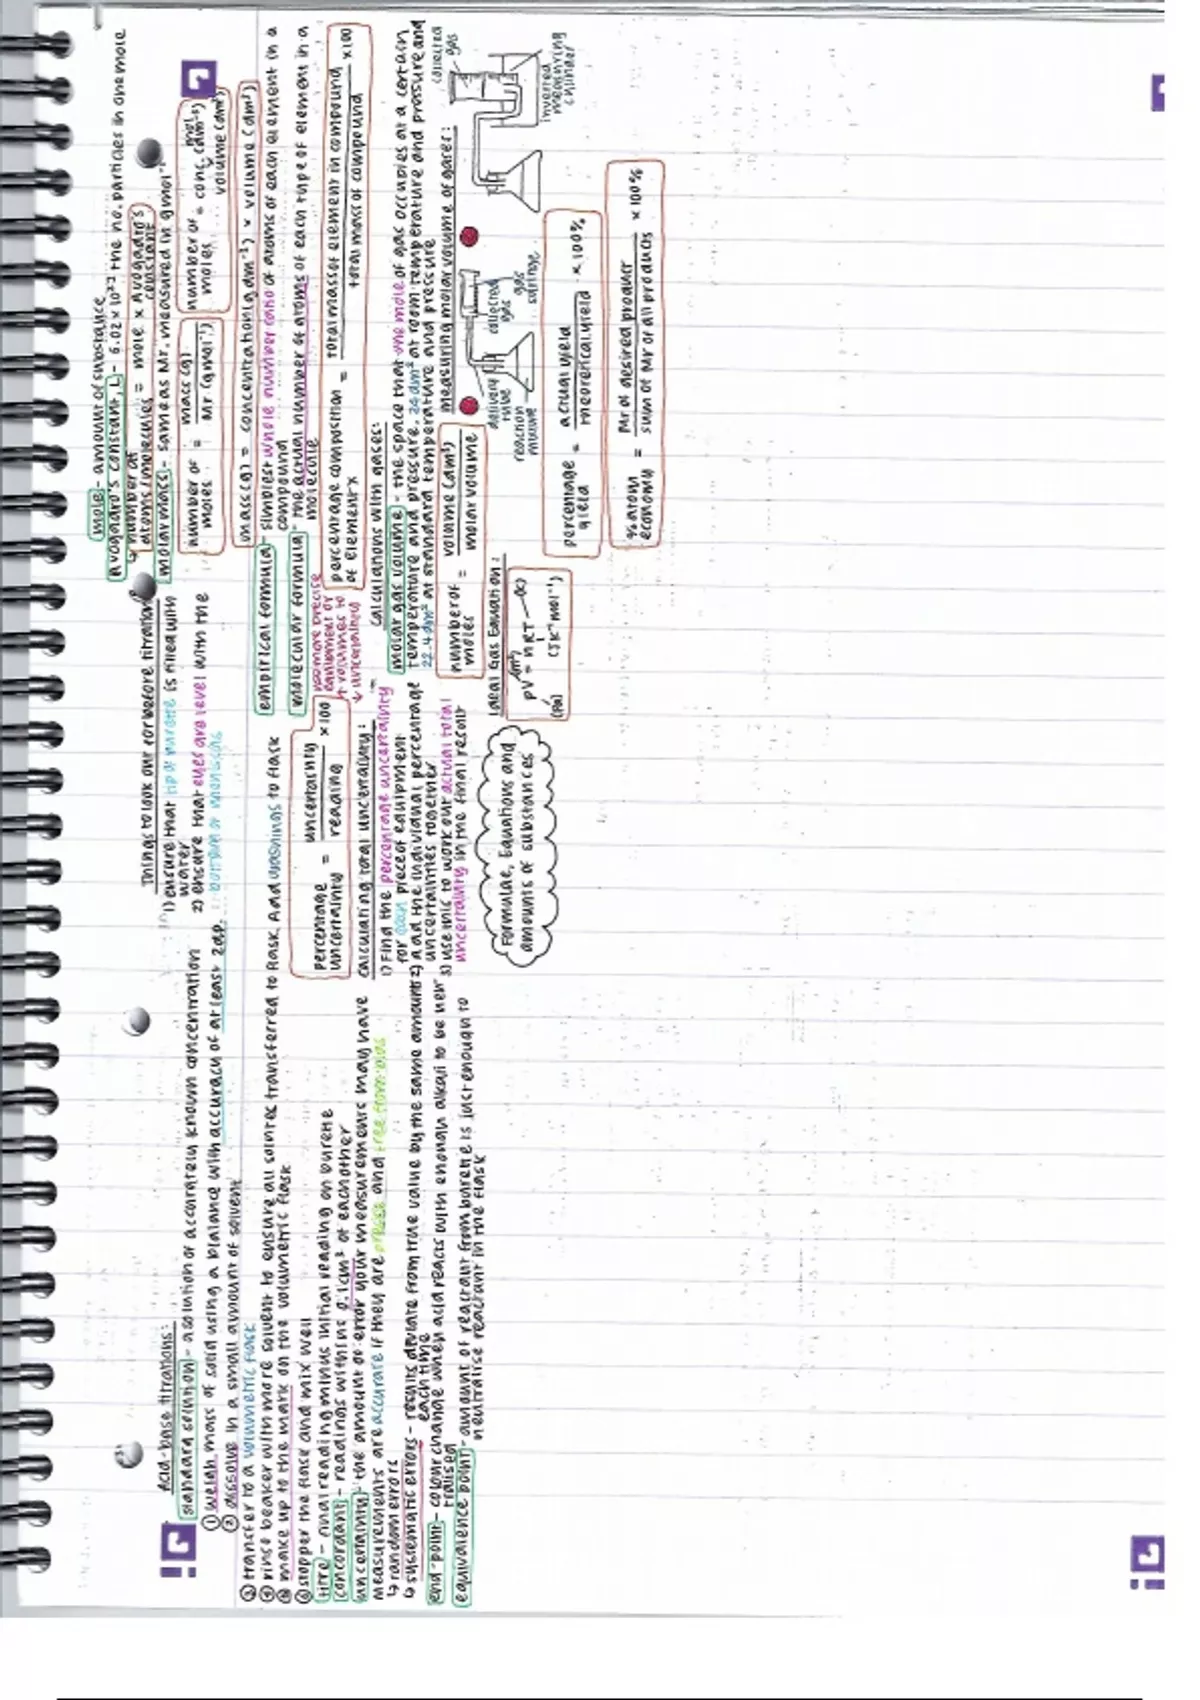 Acid-base titrations:
standard solution - a solution of accurately known concentration
① weigh mass of solid using a balance with accuracy of at least 2dp.
② dissolve in a small amount of solvent
③ transfer to a volumetric flask
④ rinse beaker with more solvent to ensure all solute is transferred to flask. Add washings to flask
⑤ make up to the mark on the volumetric flask
⑥ stopper the flask and mix well
titre - final reading minus initial reading on burette
concordant - readings within ± 0.1cm³ of each other
uncertainty - the amount of error your measurements may have
measurements are accurate if they are precise and free from bias
↳ random errors
↳ systematic errors - results deviate from true value by the same amount
each time
end point - colour change when acid reacts with enough alkali to be neu-
tralised
equivalence point - amount of reactant from burette is just enough to
neutralise reactant in the flask
Things to look out for before titration
1) ensure that tip of burette is filled with
water
2) ensure that eyes are level with the
bottom of meniscus
percentage uncertainty = uncertainty / reading ×100
use more precise
equipment or
↑ volumes to
↓ uncertainty
calculating total uncertainty:
1) Find the percentage uncertainty
for each piece of equipment
2) add the individual percentage
uncertainties together
3) use this to work out actual total
uncertainty in the final result
Formulae, Equations and
amounts of substances
mole - amount of substance
Avogadro's constant, L - 6.02 × 10²³ the no. particles in one mole
↳ number of atoms/molecules = mole × avogadro's constant
molar mass - same as Mr. measured in gmol⁻¹
number of moles = mass (g) / Mr (gmol⁻¹)
number of moles = conc. (mol dm⁻³) volume (dm³)
mass (g) = concentration (g dm⁻³) × volume (dm³)
empirical formula - simplest whole number ratio of atoms of each element in a
compound
molecular formula - the actual number of atoms of each type of element in a
molecule
percentage composition of element X = total mass of element in compound / total mass of compound ×100
calculations with gases:
molar gas volume - the space that one mole of gas occupies at a certain
temperature and pressure. 24 dm³ at room temperature and pressure and
22.4 dm³ at standard temperature and pressure
number of moles = volume (dm³) / molar volume
measuring molar volume of gases:
delivery tube
collected gas
gas syringe
reaction mixture
collected gas
inverted measuring cylinder
Ideal Gas Equation:
pV = nRT
(Pa) (m³) (JK⁻¹mol⁻¹) (K)
percentage yield = actual yield / theoretical yield × 100%
% atom economy = Mr of desired product / sum of Mr of all products × 100%